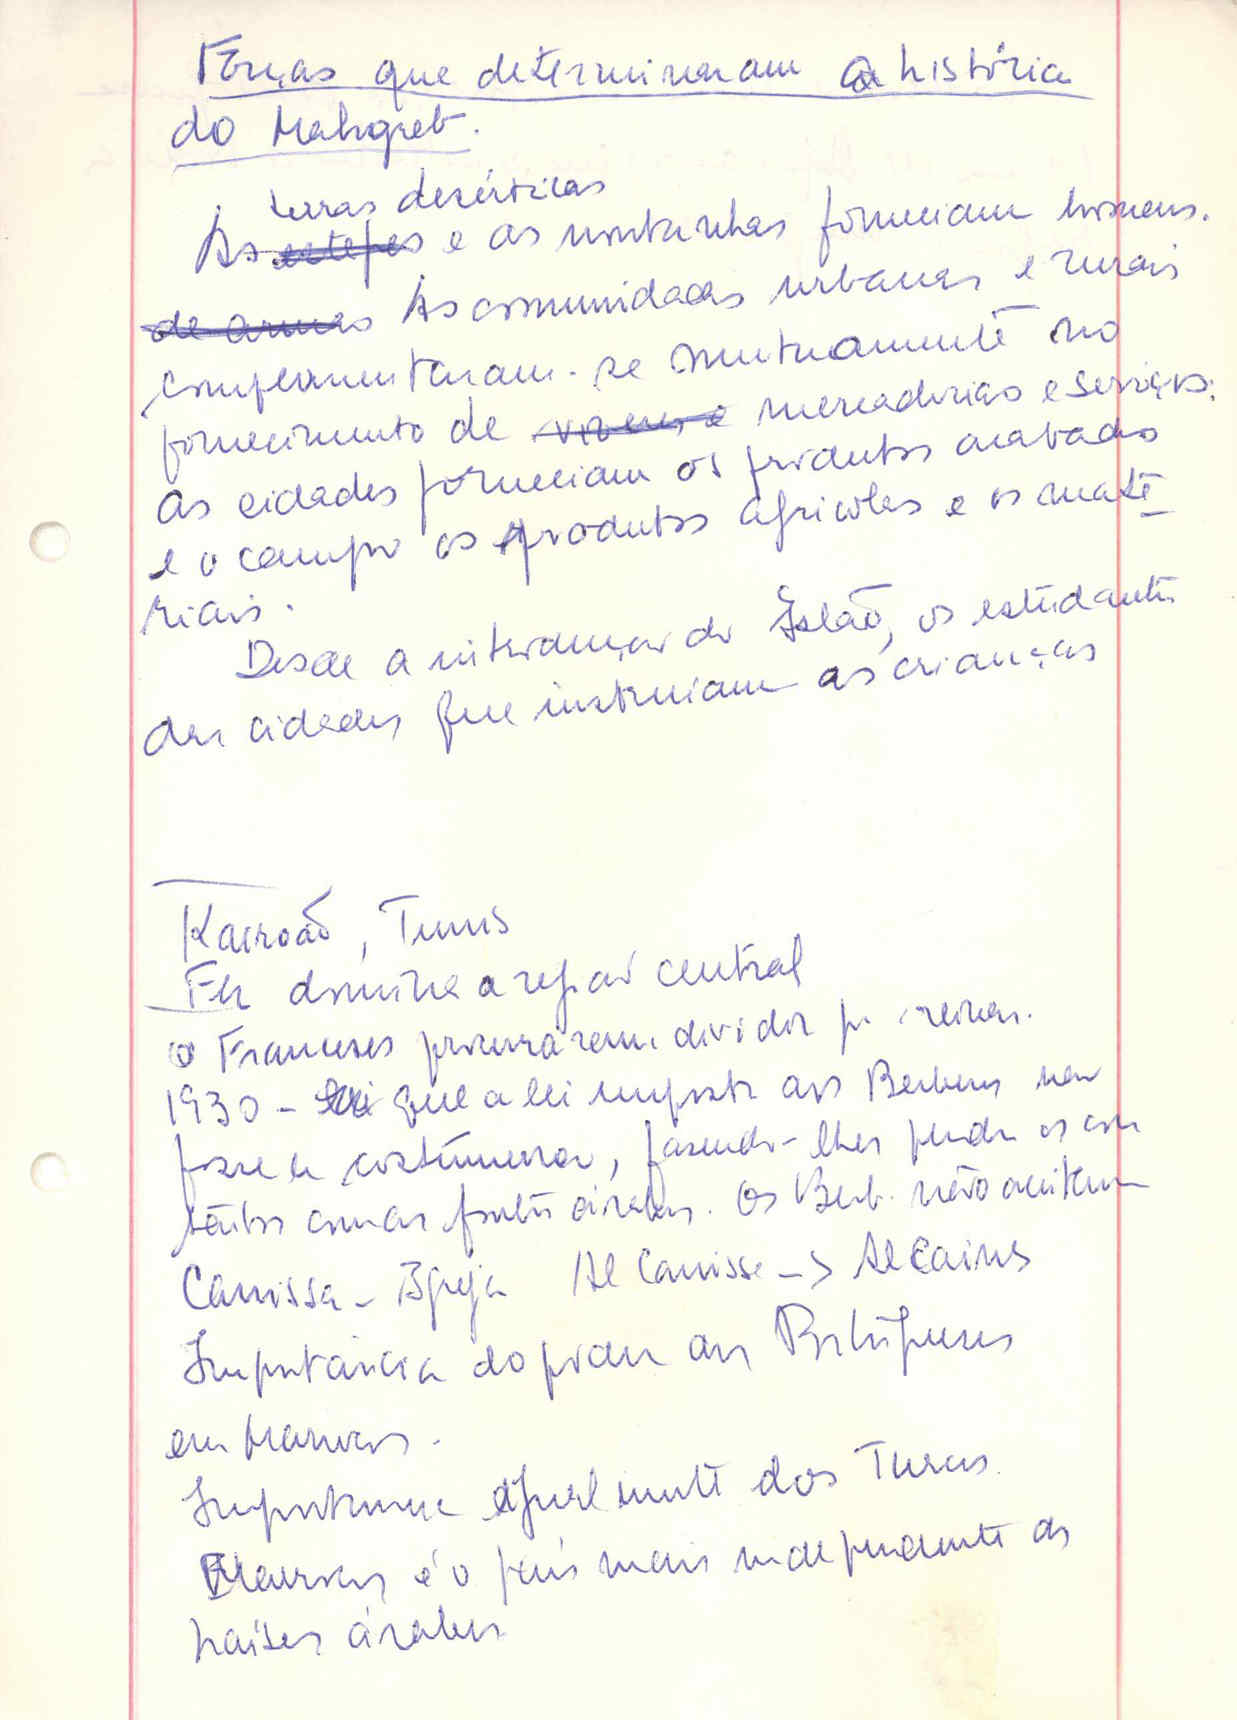 Forças que determinaram a história
do Mahgreb.
terras desérticas
As estepes e as montanhas forneciam homens.
de armas As comunidades urbanas e rurais
complementaram-se mutuamente no
fornecimento de víveres e mercadorias e serviços;
as cidades forneciam os produtos acabados
e o campo os produtos agrícolas e os maté
riais.
Desde a introdução do Islão, os estudantes
das cidades que instruiam as crianças
Kairoão, Tunis
Fez domina a região central
Os Franceses procuraram dividir p. reinar.
1930 - que a lei imposta aos Berberes não
fosse a costumeira, fazendo-lhes perder os con
tactos com as fontes árabes. Os Berb. não aceitam
Canissa - Igreja Al Canisse -> Alcains
Importância do poder dos Portugueses
em Marrocos.
Importância igualmente dos Turcos.
Marrocos é o país mais independente dos
países árabes